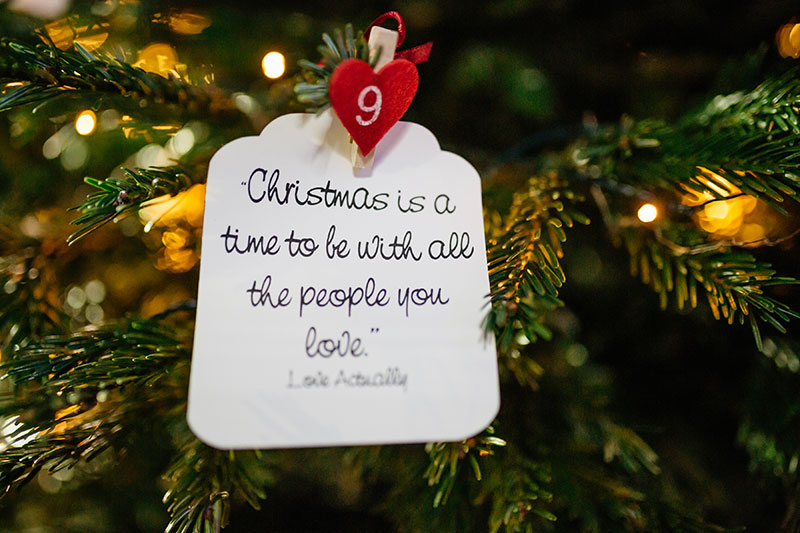 9
“Christmas is a
time to be with all
the people you
love.”
Love Actually